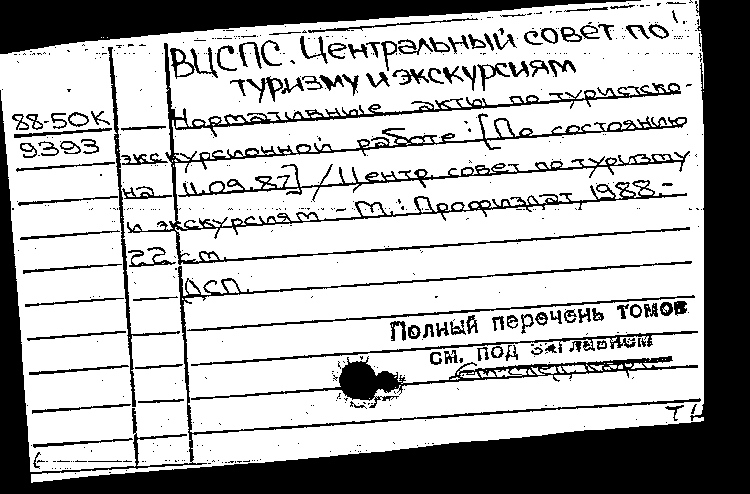 ВЦСПС. Центральный совет по
туризму и экскурсиям
88-50К
9393
Нормативные акты по туристско-
экскурсионной работе: [По состоянию
на 11.09.87] / Центр. совет по туризму
и экскурсиям - М.: Профиздат, 1988.-
22 см.
ДСП.
Полный перечень томов
см. под заглавием
См. след. карт.
ТН